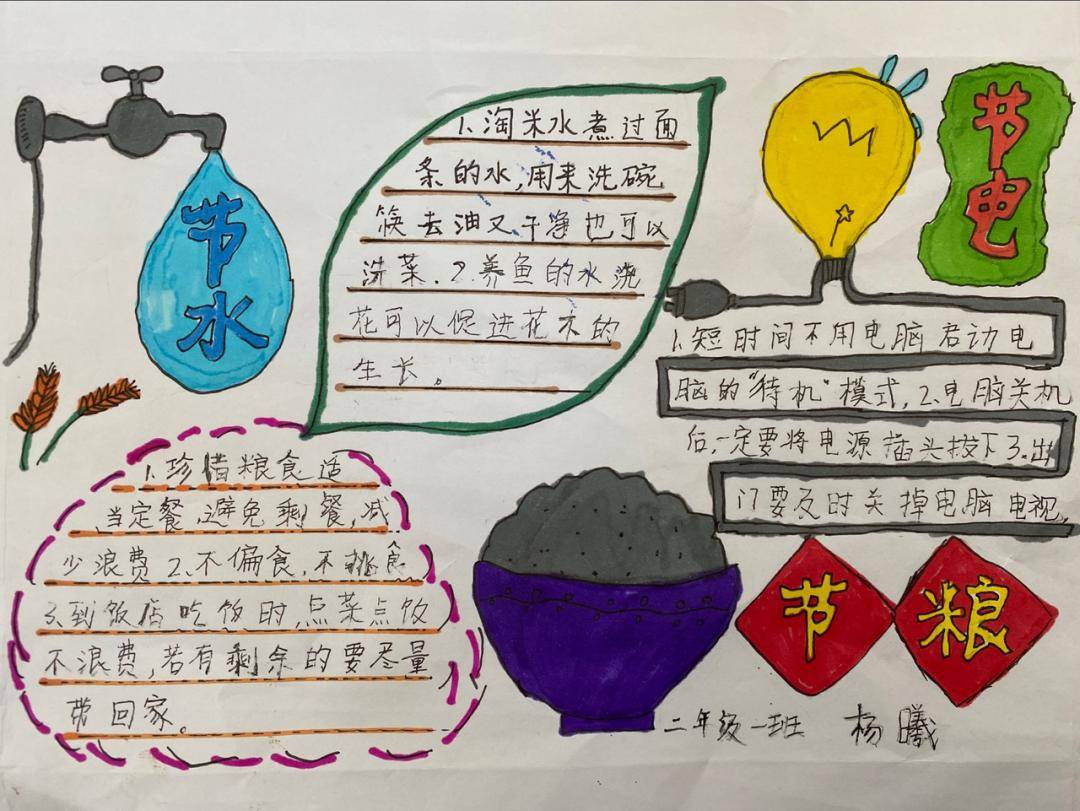 节水
1.淘米水煮过面
条的水,用来洗碗
筷去油又干净也可以
洗菜.2.养鱼的水浇
花可以促进花木的
生长。
节电
1.短时间不用电脑启动电
脑的“待机”模式,2.电脑关机
后,一定要将电源插头拔下3.出
门要及时关掉电脑电视,
1.珍惜粮食适
当定餐,避免剩餐,减
少浪费2.不偏食,不挑食
3.到饭店吃饭时,点菜点饮
不浪费,若有剩余的要尽量
带回家。
节粮
二年级一班 杨曦